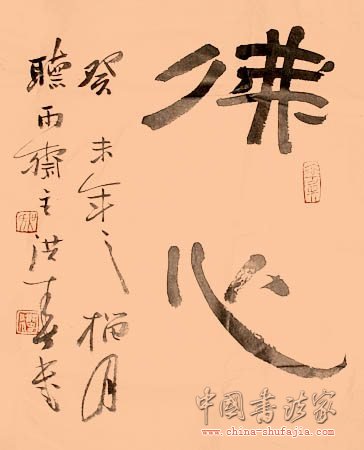 佛心
癸未年之月
聽雨齋主洪書
中國书法家
www.china-shufajia.com